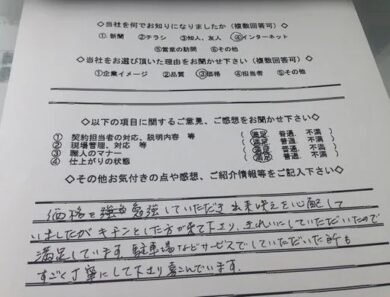 ◇当社を何でお知りになりましたか(複数回答可)◇
1.新聞 ②チラシ ③知人、友人 ④インターネット
⑤営業の訪問 ⑥その他
◇当社をお選び頂いた理由をお聞かせ下さい(複数回答可)◇
①企業イメージ ②品質 ③価格 ④担当者 ⑤その他
◇以下の項目に関するご意見、ご感想をお聞かせ下さい◇
① 契約担当者の対応、説明内容 等 (満足 普通 不満)
② 現場管理、対応 等 (満足 普通 不満)
③ 職人のマナー (満足 普通 不満)
④ 仕上がりの状態 (満足 普通 不満)
◇その他お気付きの点や感想、ご紹介情報等をご記入下さい◇
価格を 勉強していただき 出来映えを心配して
いましたが キチンとした方が来て下さり、きれいにしていただいたので
満足しています。駐車場などサービスでしていただいた所も
すごく丁寧にして下さり喜んでいます。